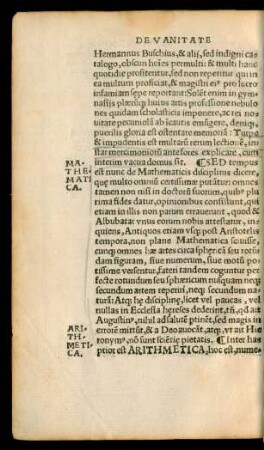 DE VANITATE
Hermannus Buschius, & alij, sed indigni ca-
talogo, obscuri hoīes permulti: & multi hanc
quotidie profitentur, sed non reperitur qui in
ea multum proficiat, & magistri ei⁹ pro lucro
infamiam sepe reportant: Solēt enim in gym-
nasijs plærūq; huius artis professione nebulo
nes quidam scholasticis imponere, ac rei noui
tate pecuniolā ab incautis emūgere, deniq;
puerilis gloria est ostentare memoriā: Turpe
& impudentis est multarū rerum lectionē, in-
star mercimoniorū ante fores explicare, cum
interim vacua domus sit. ¶ SED tempus
MA-
THE-
MATI
CA.
est nunc de Mathematicis disciplinis dicere,
que multo omniū certissimæ putātur: omnes
tamen non nisi in doctorū suorum, quib⁹ plu
rima fides datur, opinionibus consistunt, qui
etiam in illis non parum errauerunt, quod &
Albubatar vnus eorum nobis attestatur, in-
quiens, Antiquos etiam vsq; post Aristotelis
tempora, non plane Mathematica sciuisse.
cunq; omnes hæ artes circa spherā seu rotū-
dam figuram, siue numerum, siue motū po-
tissime versentur, fateri tandem coguntur per
fecte rotundum seu sphæricum nusquam neq;
secundum artem reperiri, neq; secundum na-
turā: Atq; he disciplinę, licet vel paucas, vel
nullas in Ecclesia hęreses dederint, tñ, qd ait
Augustin⁹, nihil ad salutē ptinēt, sed magis in
ARI-
TH-
METI-
CA.
errorē mittūt, & a Deo auocāt, atq;, vt ait Hie
ronym⁹, nō sunt sciētię pietatis. ¶ Inter has
prior est ARITHMETICA, hoc est, nume-